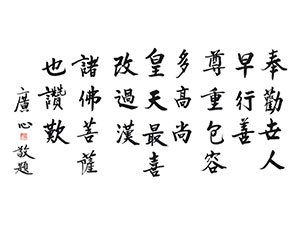 奉勸世人
早行善
尊重包容
多高尚
皇天最喜
改過漢
諸佛菩薩
也讚歎
廣心敬題